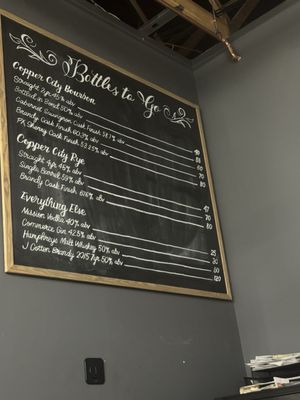 Bottles to Go
Copper City Bourbon
Straight 3yr 45% abv
Bottled in Bond 50% abv
Cabernet Sauvignon Cask Finish 58.1% abv
Brandy Cask Finish 60.3% abv
PX Sherry Cask Finish 53.35% abv
Copper City Rye
Straight 4yr 46% abv 47
Single Barrel 59% abv 70
Brandy Cask Finish 61.6% abv 80
Everything Else
Mission Vodka 40% abv 25
Commerce Gin 42.5% abv 30
Humphreys Malt Whiskey 50% abv 60
J Cotton Brandy 2015 7yr 50% abv 120